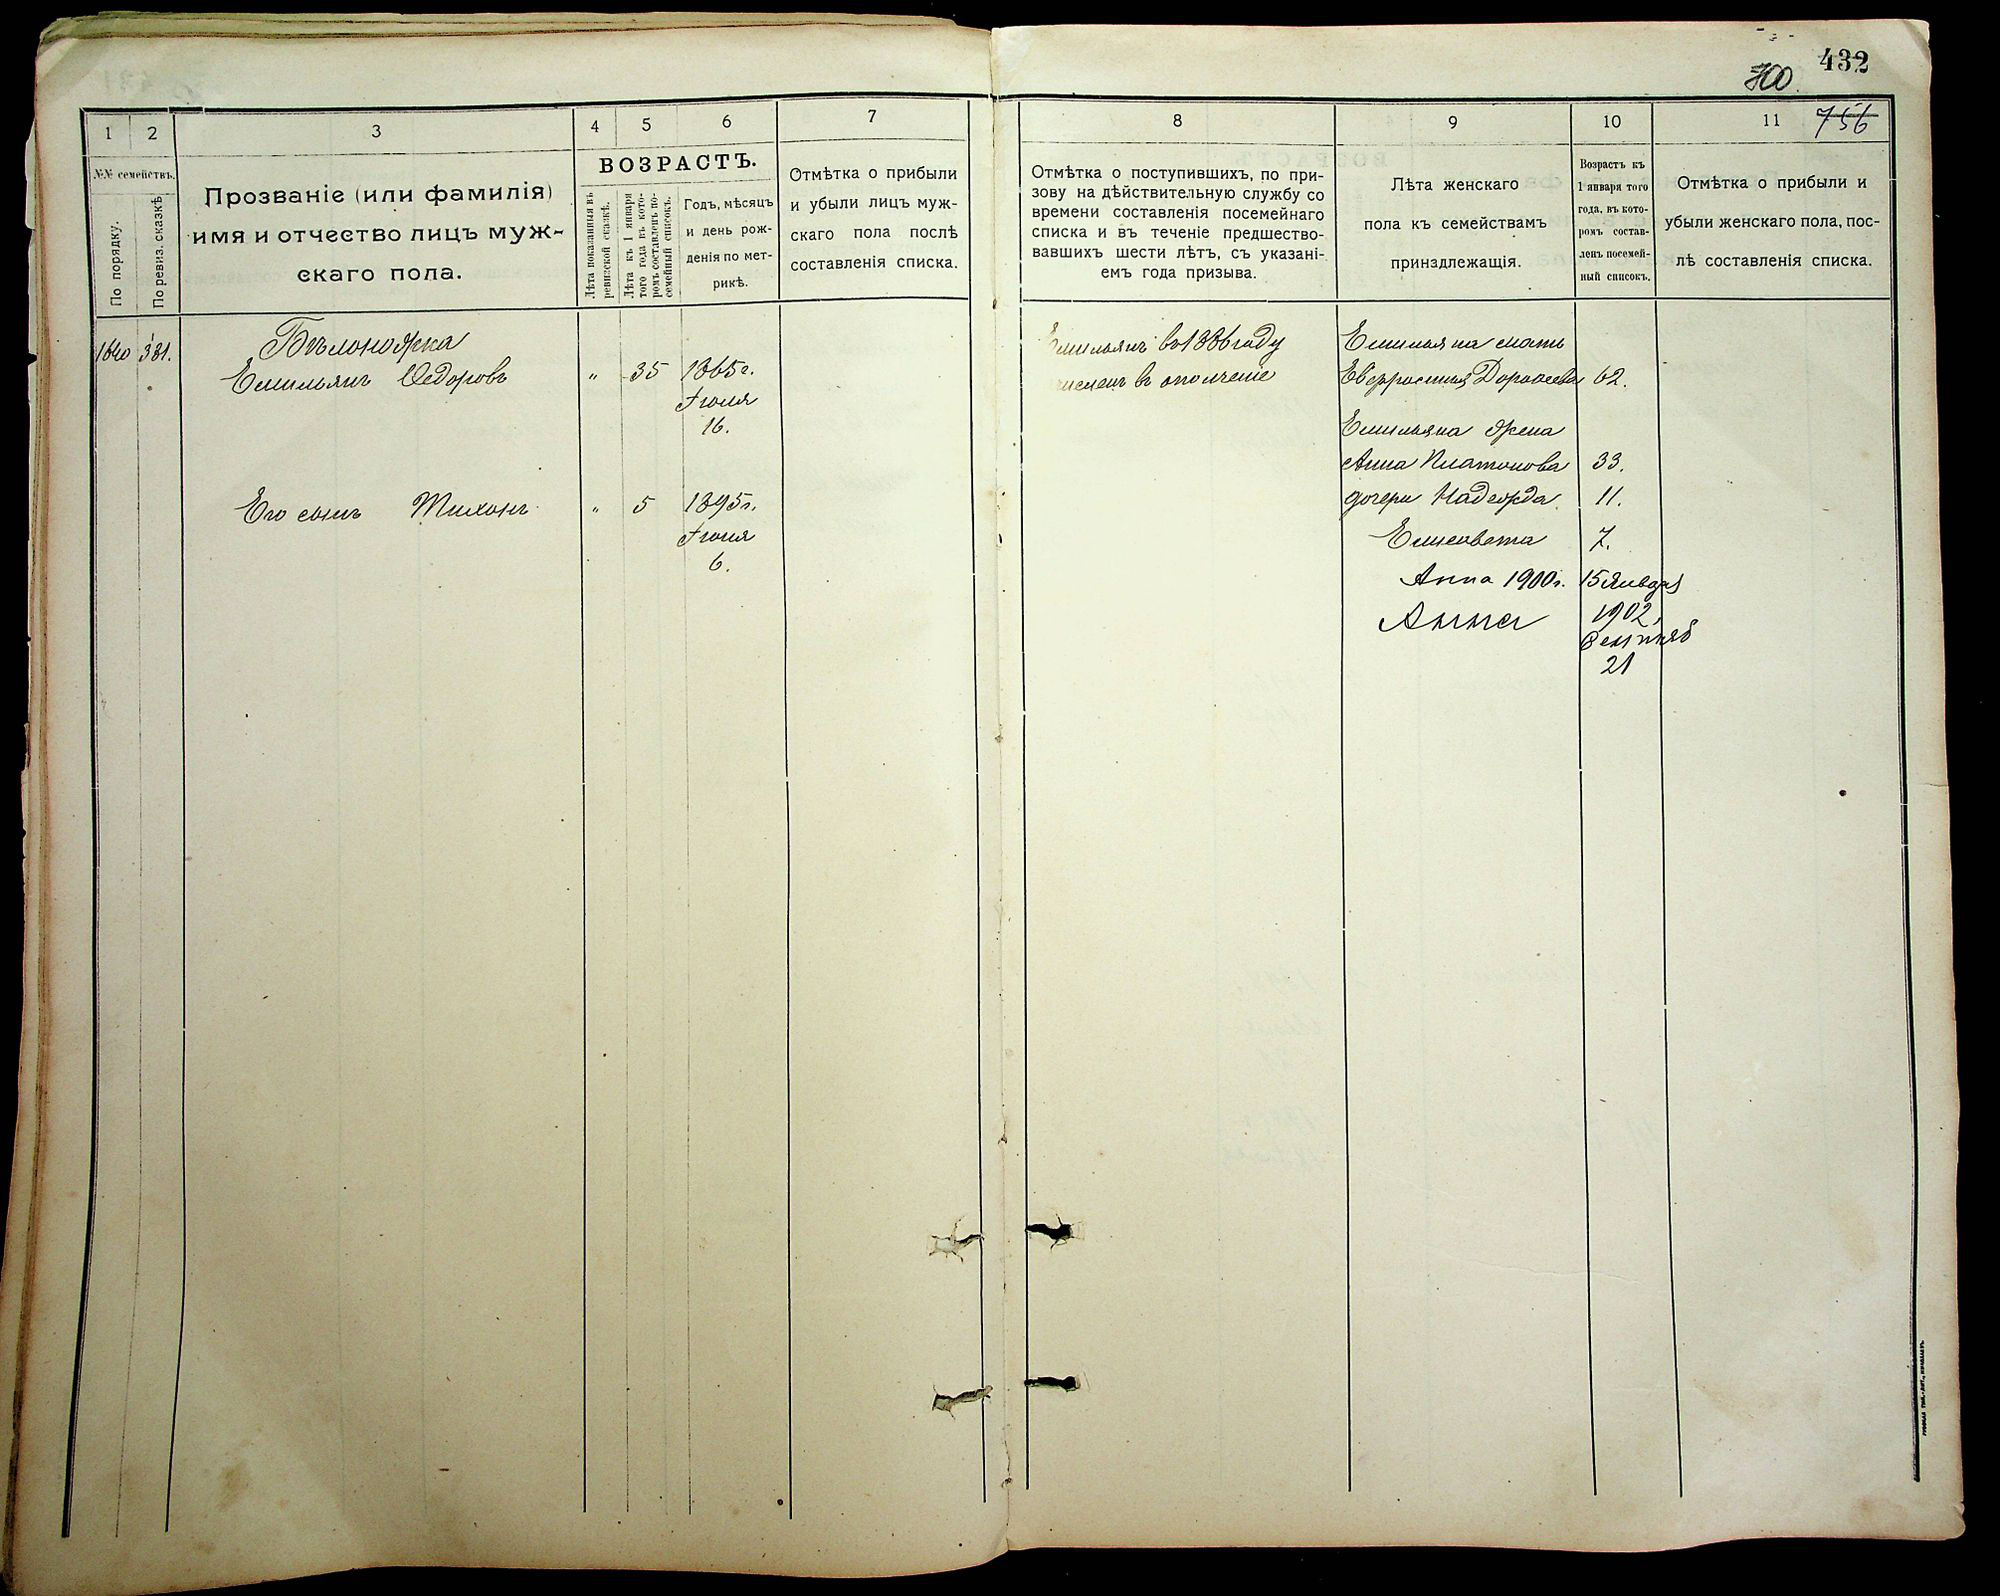 432
700
1
2
3
4
5
6
7
8
9
10
11
756
№№ семействъ.
По порядку.
По ревиз. сказкѣ
Прозваніе (или фамилія)
имя и отчество лицъ муж-
скаго пола.
ВОЗРАСТЪ.
Лѣта показанныя въ
ревизской сказкѣ.
Лѣта къ 1 января
того года въ кото-
ромъ составленъ по-
семейный списокъ.
Годъ, мѣсяцъ
и день рож-
денія по мет-
рикѣ.
Отмѣтка о прибыли
и убыли лицъ муж-
скаго пола послѣ
составленія списка.
Отмѣтка о поступившихъ, по при-
зову на дѣйствительную службу со
времени составленія посемейнаго
списка и въ теченіе предшество-
вавшихъ шести лѣтъ, съ указані-
емъ года призыва.
Лѣта женскаго
пола къ семействамъ
принздлежащія.
Возрастъ къ
1 января того
года, въ кото-
ромъ состав-
ленъ посемей-
ный списокъ.
Отмѣтка о прибыли и
убыли женскаго пола, пос-
лѣ составленія списка.
1640 381. Бѣлоножка
Емильянъ Ѳедоровъ " 35 1865 г.
Іюля
16.
Его сынъ Тихонъ " 5 1895 г.
Іюня
6.
Емильянъ въ 1886 году
численъ въ ополченіе
Емильяна мать
Евфросинія Дороѳеева 62.
Емильяна жена
Анна Платонова 33.
дочери Надежда 11.
Елисавета 7.
Анна 1900 г. 15 Января
Анна 1902,
Сентяб
21